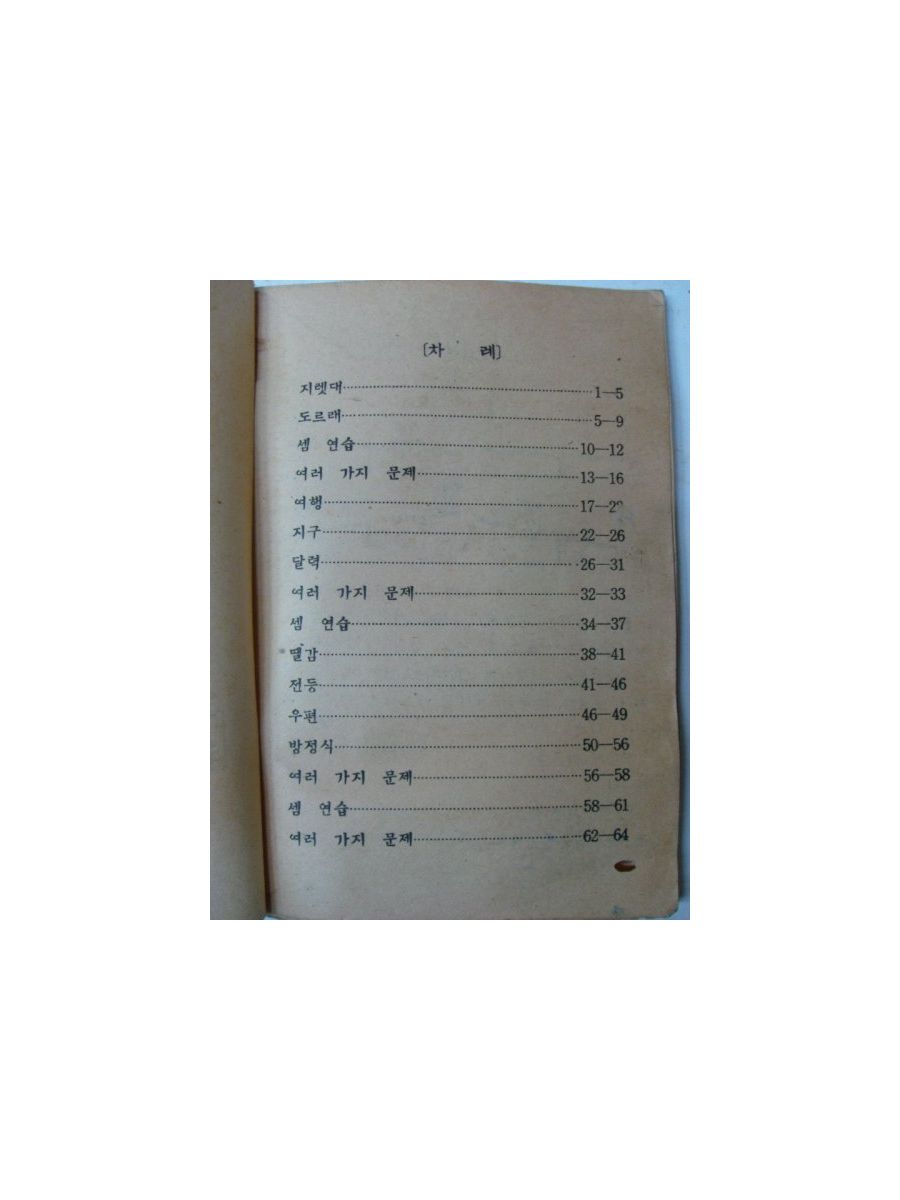 〔차 례〕
지렛대 1—5
도르래 5—9
셈 연습 10—12
여러 가지 문제 13—16
여행 17—22
지구 22—26
달력 26—31
여러 가지 문제 32—33
셈 연습 34—37
땔감 38—41
전등 41—46
우편 46—49
방정식 50—56
여러 가지 문제 56—58
셈 연습 58—61
여러 가지 문제 62—64